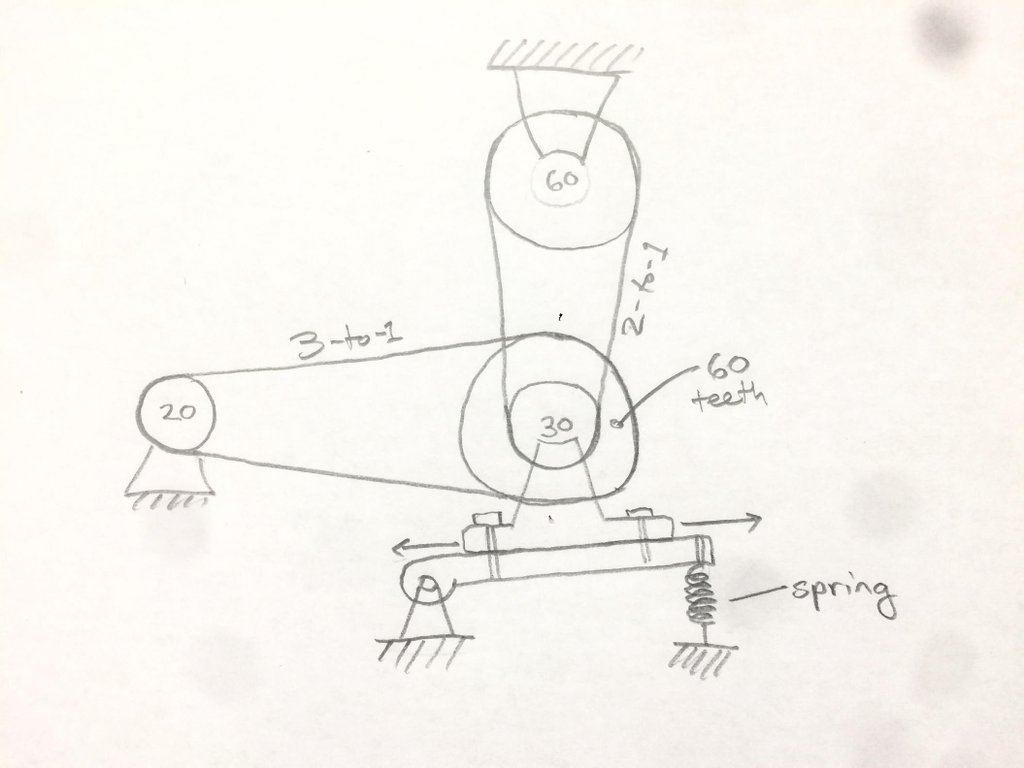 60
2-to-1
3-to-1
60
teeth
20
30
spring